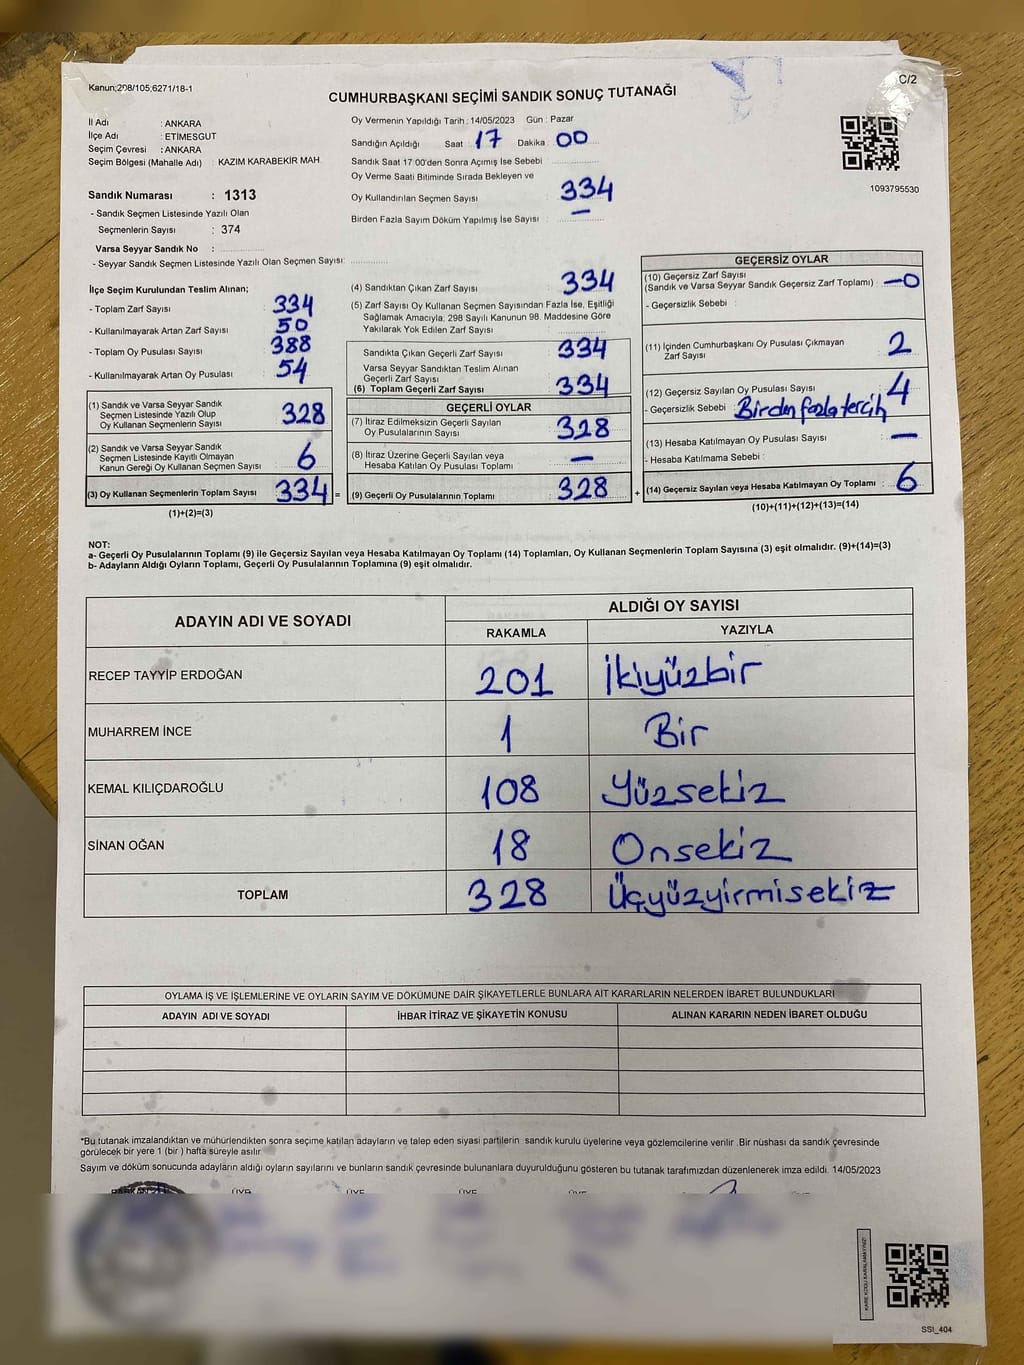 Kanun;298/105;6271/18-1
C/2
CUMHURBAŞKANI SEÇİMİ SANDIK SONUÇ TUTANAĞI
İl Adı : ANKARA
İlçe Adı : ETİMESGUT
Seçim Çevresi : ANKARA
Seçim Bölgesi (Mahalle Adı) : KAZIM KARABEKİR MAH.
Sandık Numarası : 1313
- Sandık Seçmen Listesinde Yazılı Olan
Seçmenlerin Sayısı : 374
Varsa Seyyar Sandık No :
- Seyyar Sandık Seçmen Listesinde Yazılı Olan Seçmen Sayısı:
Oy Vermenin Yapıldığı Tarih : 14/05/2023 Gün : Pazar
Sandığın Açıldığı Saat 17 Dakika 00
Sandık Saat 17:00'den Sonra Açımış İse Sebebi
Oy Verme Saati Bitiminde Sırada Bekleyen ve
Oy Kullandırılan Seçmen Sayısı : 334
Birden Fazla Sayım Döküm Yapılmış İse Sayısı : —
1093795530
İlçe Seçim Kurulundan Teslim Alınan;
- Toplam Zarf Sayısı : 334
- Kullanılmayarak Artan Zarf Sayısı : 50
- Toplam Oy Pusulası Sayısı : 388
- Kullanılmayarak Artan Oy Pusulası : 54
(1) Sandık ve Varsa Seyyar Sandık
Seçmen Listesinde Yazılı Olup
Oy Kullanan Seçmenlerin Sayısı : 328
(2) Sandık ve Varsa Seyyar Sandık
Seçmen Listesinde Kayıtlı Olmayan
Kanun Gereği Oy Kullanan Seçmen Sayısı : 6
(3) Oy Kullanan Seçmenlerin Toplam Sayısı : 334 =
(1)+(2)=(3)
(4) Sandıktan Çıkan Zarf Sayısı : 334
(5) Zarf Sayısı Oy Kullanan Seçmen Sayısından Fazla İse, Eşitliği
Sağlamak Amacıyla; 298 Sayılı Kanunun 98. Maddesine Göre
Yakılarak Yok Edilen Zarf Sayısı :
Sandıkta Çıkan Geçerli Zarf Sayısı : 334
Varsa Seyyar Sandıktan Teslim Alınan
Geçerli Zarf Sayısı :
(6) Toplam Geçerli Zarf Sayısı : 334
GEÇERLİ OYLAR
(7) İtiraz Edilmeksizin Geçerli Sayılan
Oy Pusulalarının Sayısı : 328
(8) İtiraz Üzerine Geçerli Sayılan veya
Hesaba Katılan Oy Pusulası Toplamı : —
(9) Geçerli Oy Pusulalarının Toplamı : 328 +
GEÇERSİZ OYLAR
(10) Geçersiz Zarf Sayısı
(Sandık ve Varsa Seyyar Sandık Geçersiz Zarf Toplamı) : —0
- Geçersizlik Sebebi :
(11) İçinden Cumhurbaşkanı Oy Pusulası Çıkmayan
Zarf Sayısı : 2
(12) Geçersiz Sayılan Oy Pusulası Sayısı : 4
- Geçersizlik Sebebi : Birden fazla tercih
(13) Hesaba Katılmayan Oy Pusulası Sayısı : —
- Hesaba Katılmama Sebebi :
(14) Geçersiz Sayılan veya Hesaba Katılmayan Oy Toplamı : 6
(10)+(11)+(12)+(13)=(14)
NOT:
a- Geçerli Oy Pusulalarının Toplamı (9) ile Geçersiz Sayılan veya Hesaba Katılmayan Oy Toplamı (14) Toplamları, Oy Kullanan Seçmenlerin Toplam Sayısına (3) eşit olmalıdır. (9)+(14)=(3)
b- Adayların Aldığı Oyların Toplamı, Geçerli Oy Pusulalarının Toplamına (9) eşit olmalıdır.
ADAYIN ADI VE SOYADI
ALDIĞI OY SAYISI
RAKAMLA YAZIYLA
RECEP TAYYİP ERDOĞAN 201 İkiyüzbir
MUHARREM İNCE 1 Bir
KEMAL KILIÇDAROĞLU 108 Yüzsekiz
SİNAN OĞAN 18 Onsekiz
TOPLAM 328 Üçyüzyirmisekiz
OYLAMA İŞ VE İŞLEMLERİNE VE OYLARIN SAYIM VE DÖKÜMÜNE DAİR ŞİKAYETLERLE BUNLARA AİT KARARLARIN NELERDEN İBARET BULUNDUKLARI
ADAYIN ADI VE SOYADI İHBAR İTİRAZ VE ŞİKAYETİN KONUSU ALINAN KARARIN NEDEN İBARET OLDUĞU
*Bu tutanak imzalandıktan ve mühürlendikten sonra seçime katılan adayların ve talep eden siyasi partilerin sandık kurulu üyelerine veya gözlemcilerine verilir .Bir nüshası da sandık çevresinde
görülecek bir yere 1 (bir ) hafta süreyle asılır.
Sayım ve döküm sonucunda adayların aldığı oyların sayılarını ve bunların sandık çevresinde bulunanlara duyurulduğunu gösteren bu tutanak tarafımızdan düzenlenerek imza edildi. 14/05/2023
BAŞKAN ÜYE ÜYE ÜYE ÜYE ÜYE
KARE KODU KARALAMAYINIZ!
SSI_404